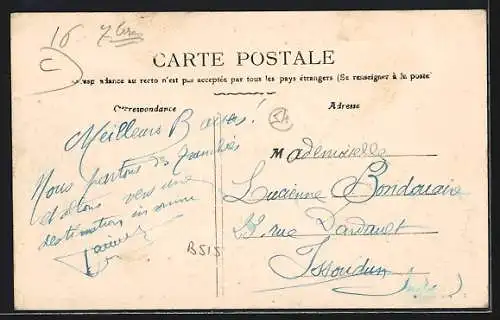 16 7bre
CARTE POSTALE
Correspondance au recto n'est pas acceptée par tous les pays étrangers (Se renseigner à la poste)
Correspondance
Adresse
Meilleurs Baisers!
Nous partons des tranchées
et allons vers une
destination inconnue
B515
Mademoiselle
Lucienne Bondouaire
rue Dardault
Issoudun
(Indre)